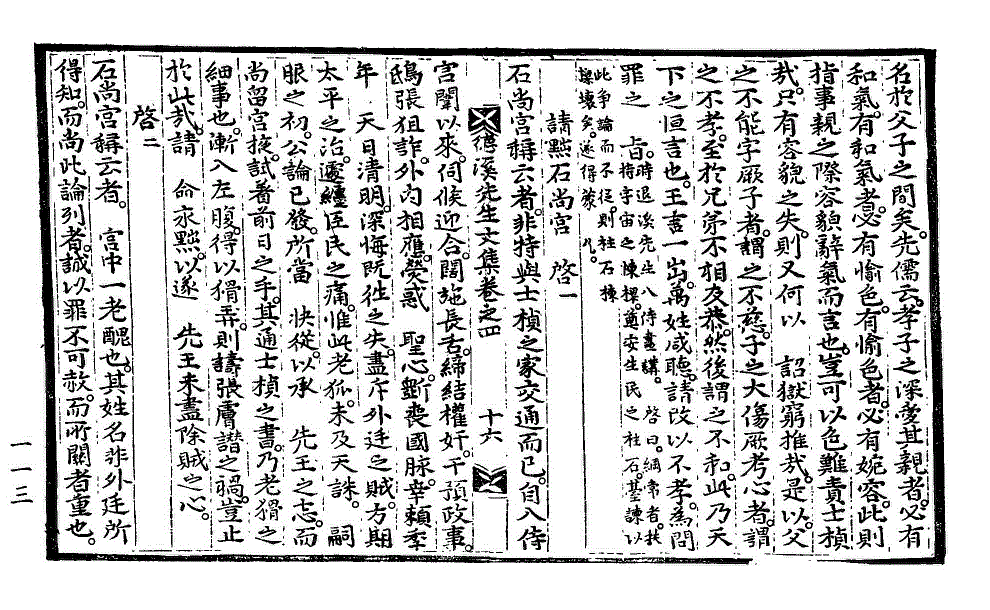 名於父子之間矣。先儒云。孝子之深愛其親者。必有
和氣。有和氣者。必有愉色。有愉色者。必有婉容。此則
指事親之際容貌辭氣而言也。豈可以色難責士楨
哉。只有容貌之失。則又何以 詔獄窮推哉。是以。父
之不能字厥子者。謂之不慈。子之大傷厥考心者。謂
之不孝。至於兄弟不相及恭。然後謂之不和。此乃天
下之恒言也。王言一出。萬姓咸聽。請改以不孝。爲問
罪之 旨。時退溪先生入侍晝講。啓曰。綱常者。扶
持宇宙之棟樑。奠安生民之柱石。臺諫以
此爭論而不從。則柱石棟
樑壞矣。遂得蒙
允。
請黜石尙宮 啓一
石尙宮稱云者。非特與士楨之家交通而已。自入侍
德溪先生文集卷之四
十六
宮闈以來。伺候迎合。闊施長舌。締結權奸。干預政事。
鴟張狙詐。外內相應。熒惑 聖心。斲喪國脉。幸賴季
年 天日淸明。深悔旣往之失。盡斥外廷之賊。方期
太平之治。遽纏臣民之痛。惟此老狐。未及天誅。 嗣
服之初。公論已發。所當 快從。以承 先王之志。而
尙留宮掖。試着前日之手。其通士楨之書。乃老猾之
細事也。漸入左腹。得以猾弄。則譸張膚譖之禍。豈止
於此哉。請 命永黜。以遂 先王未盡除賊之心。
啓二
石尙宮稱云者。 宮中一老醜也。其姓名非外廷所
得知。而尙此論列者。誠以罪不可赦。而所關者重也。
一一三